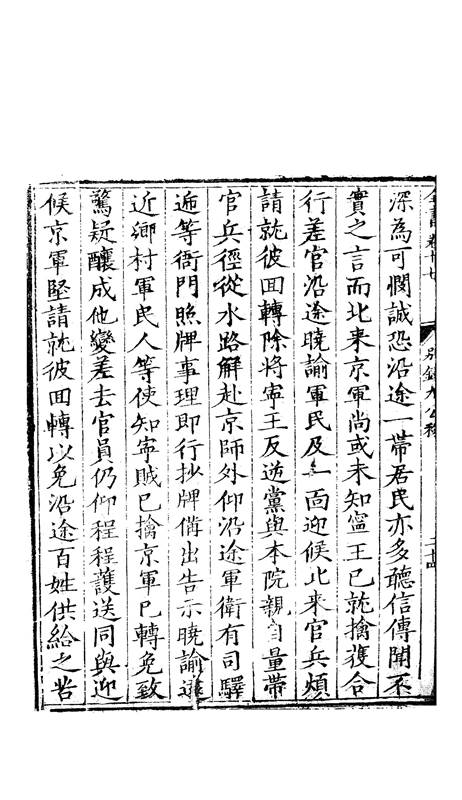 全書卷廿七　別錄九公移　二十四
深為可憫誠恐沿途一帶居民亦多聽信傳聞不
實之言而北來京軍尚或未知寧王已就擒獲合
行差官沿途曉諭軍民及一面迎候北來官兵煩
請就彼囬轉除將寧王反逆黨與本院親自量帶
官兵徑從水路解赴京師外仰沿途軍衛有司驛
遞等衙門照牌事理即行抄牌備出告示曉諭遠
近鄉村軍民人等使知寧賊已擒京軍已轉免致
驚疑釀成他變差去官員仍仰程程護送同與迎
候京軍堅請就彼囬轉以免沿途百姓供給之苦